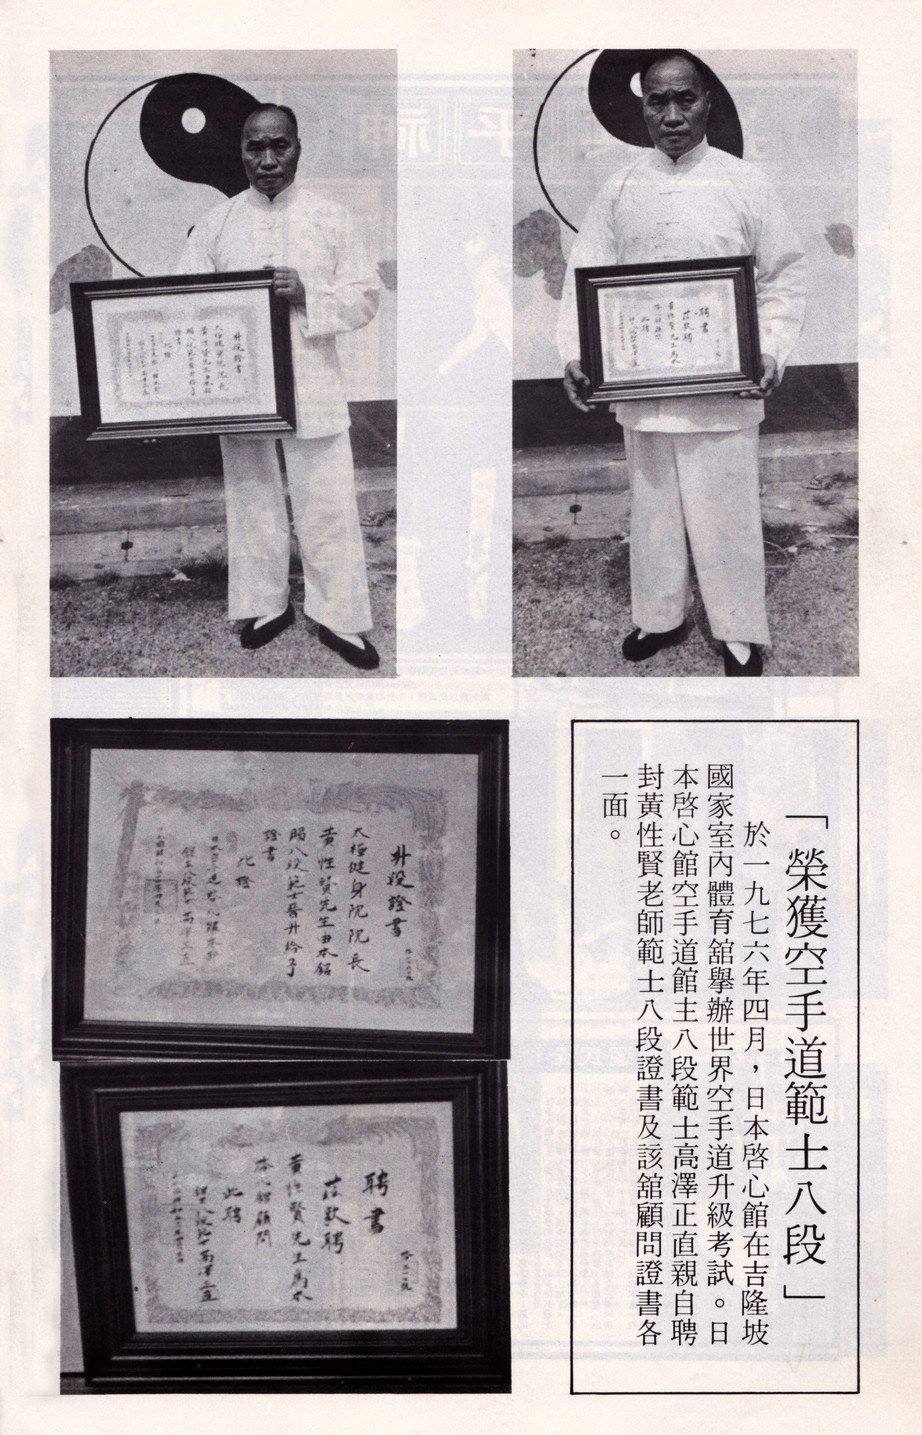 「榮獲空手道範士八段」
於一九七六年四月，日本啓心館在吉隆坡
國家室內體育舘舉辦世界空手道升級考試。日
本啓心館空手道館主八段範士高澤正直親自聘
封黃性賢老師範士八段證書及該舘顧問證書各
一面。
升段證書
太極健身院院長
黃性賢先生由本舘
賜八段範士晉升給予
證書
此證
聘書
茲敦聘
黃性賢先生為本
啓心舘顧問
此聘